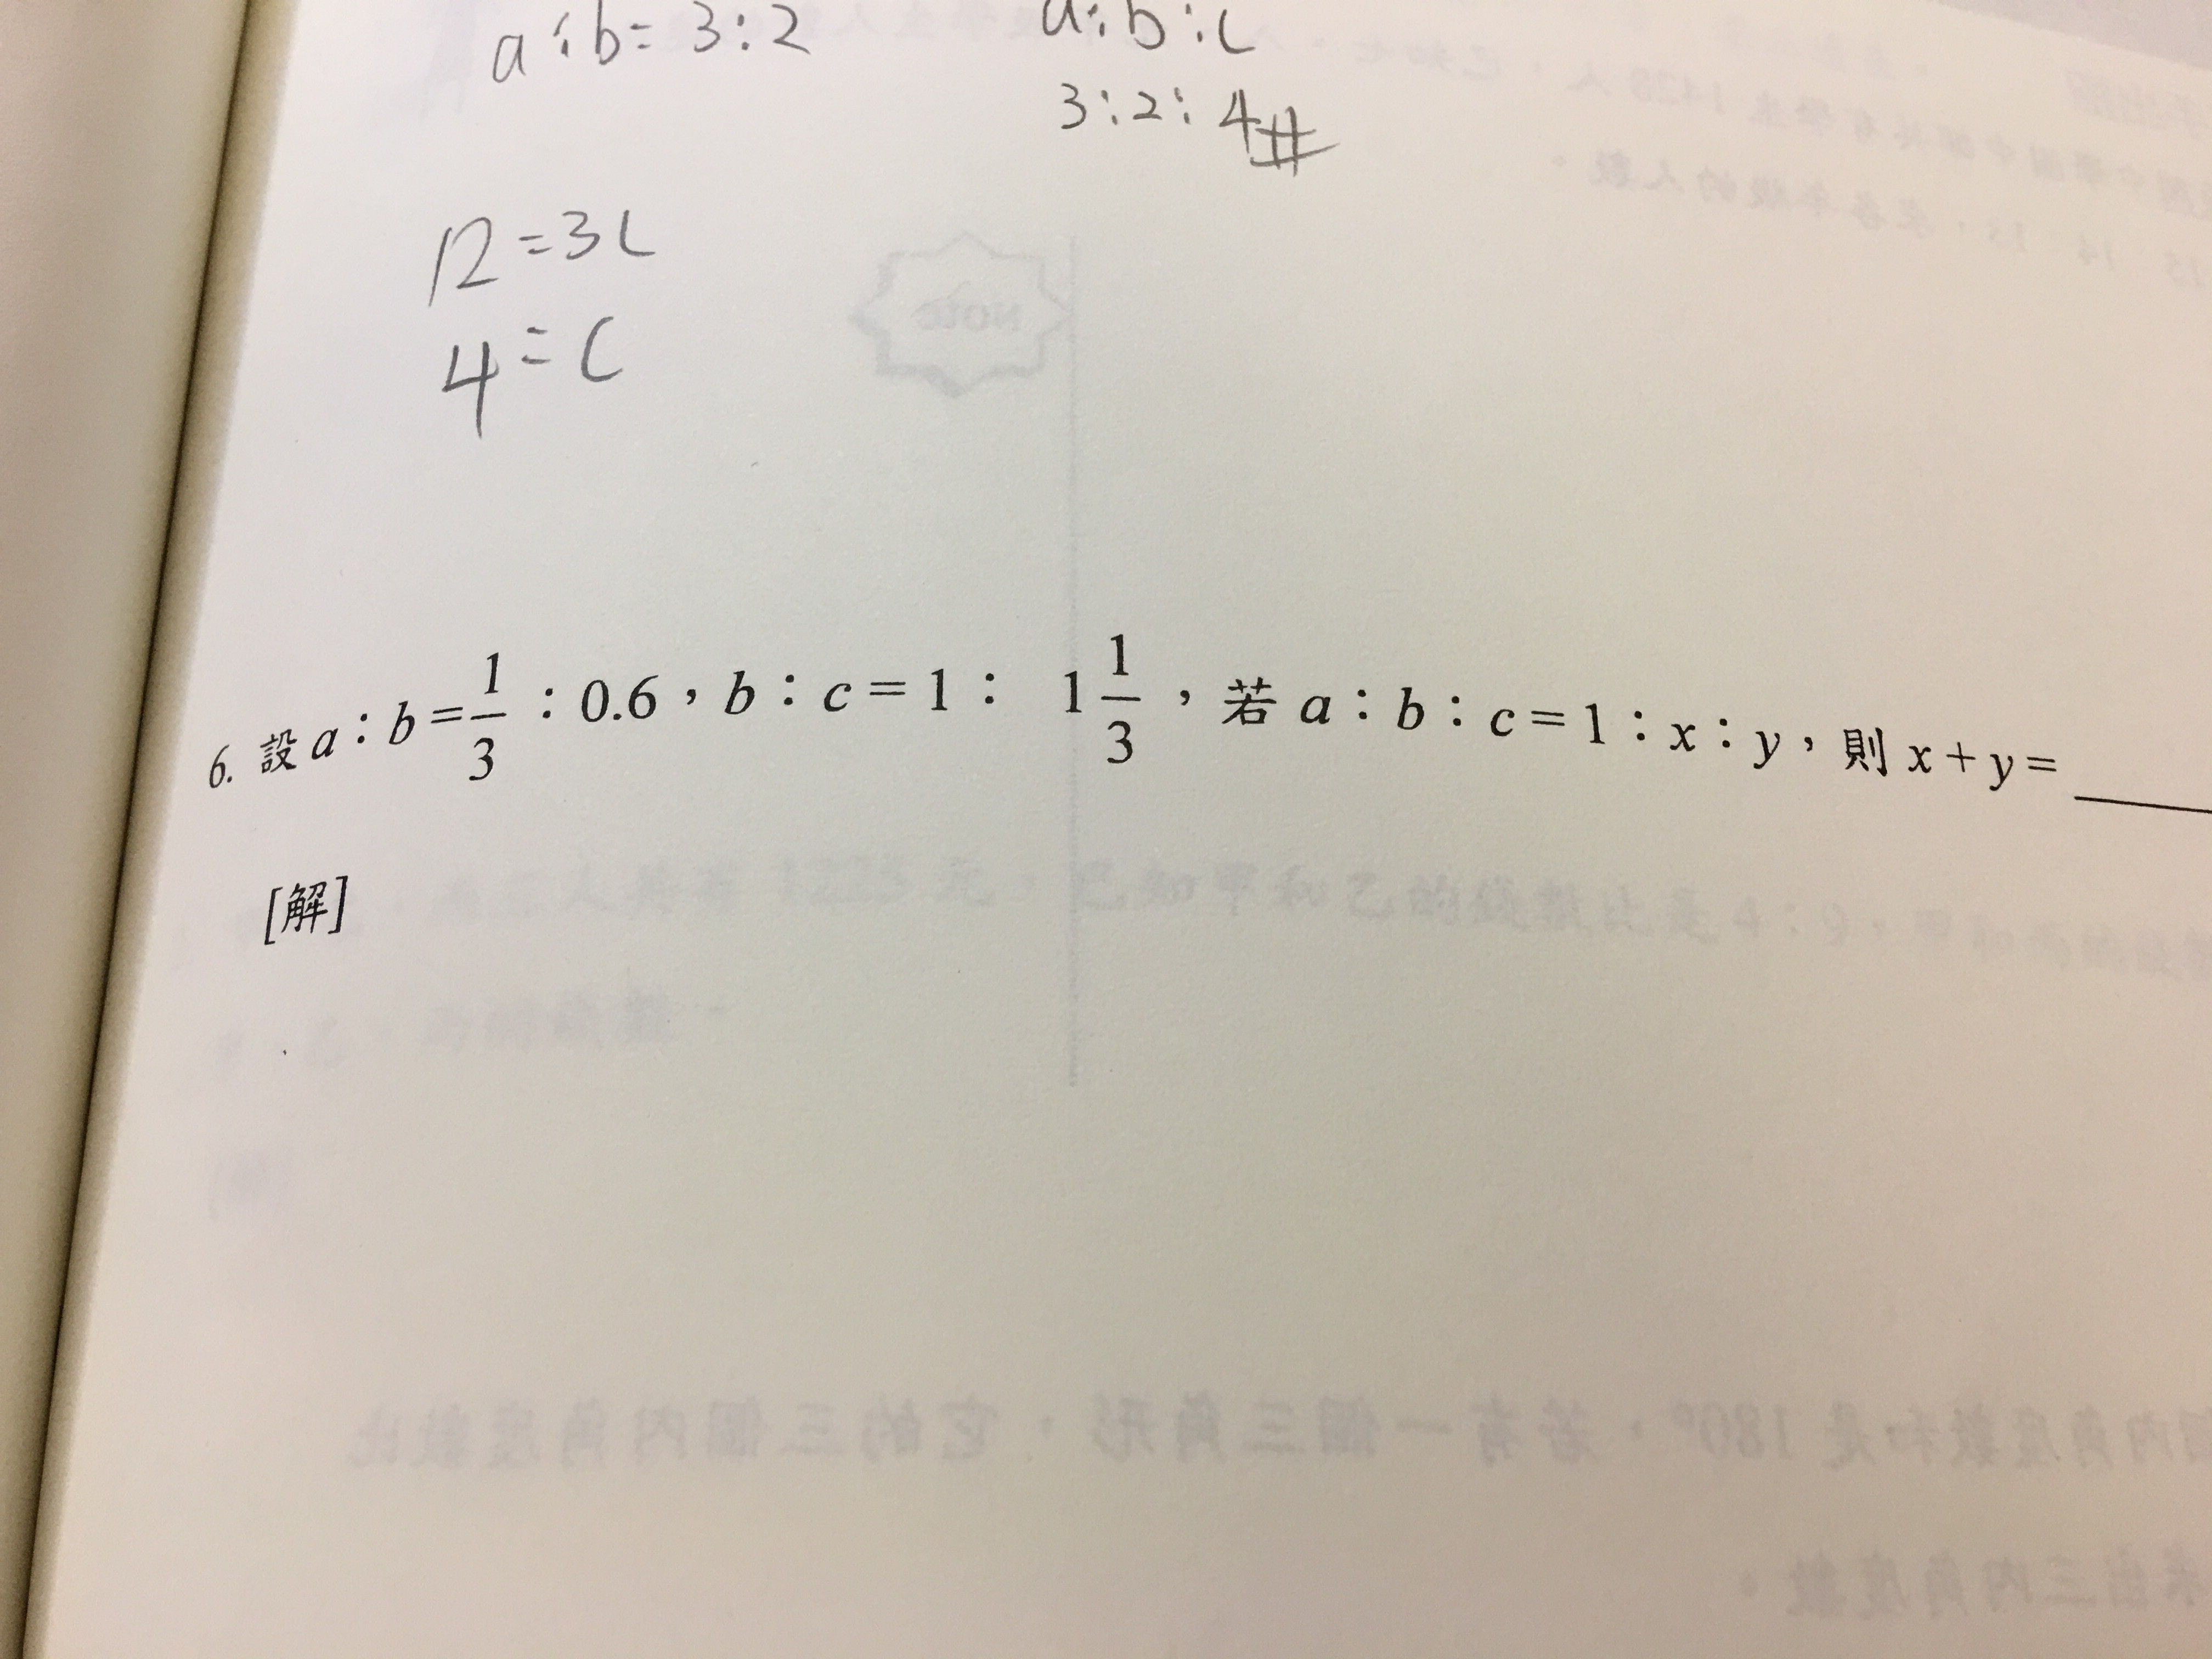 a:b=3:2
a:b:c
3:2:4#
12=3c
4=c
6. 設a：b=1/3：0.6，b：c=1： 1 1/3，若a：b：c=1：x：y，則x+y=____
[解]